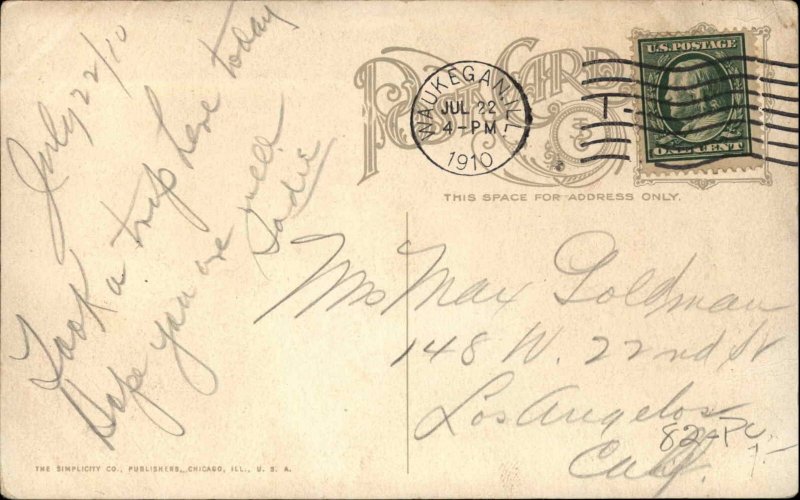 July 22/10
Took a trip here today
Hope you are well
Sadie
POST CARD
WAUKEGAN, ILL.
JUL 22
4-PM
1910
U.S. POSTAGE
ONE CENT
THIS SPACE FOR ADDRESS ONLY.
Mrs Max Goldman
148 W. 22nd St
Los Angelos
Calf.
THE SIMPLICITY CO., PUBLISHERS, CHICAGO, ILL., U. S. A.